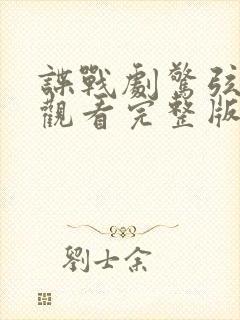 諜戰劇驚弦
觀看完整版
劉士余